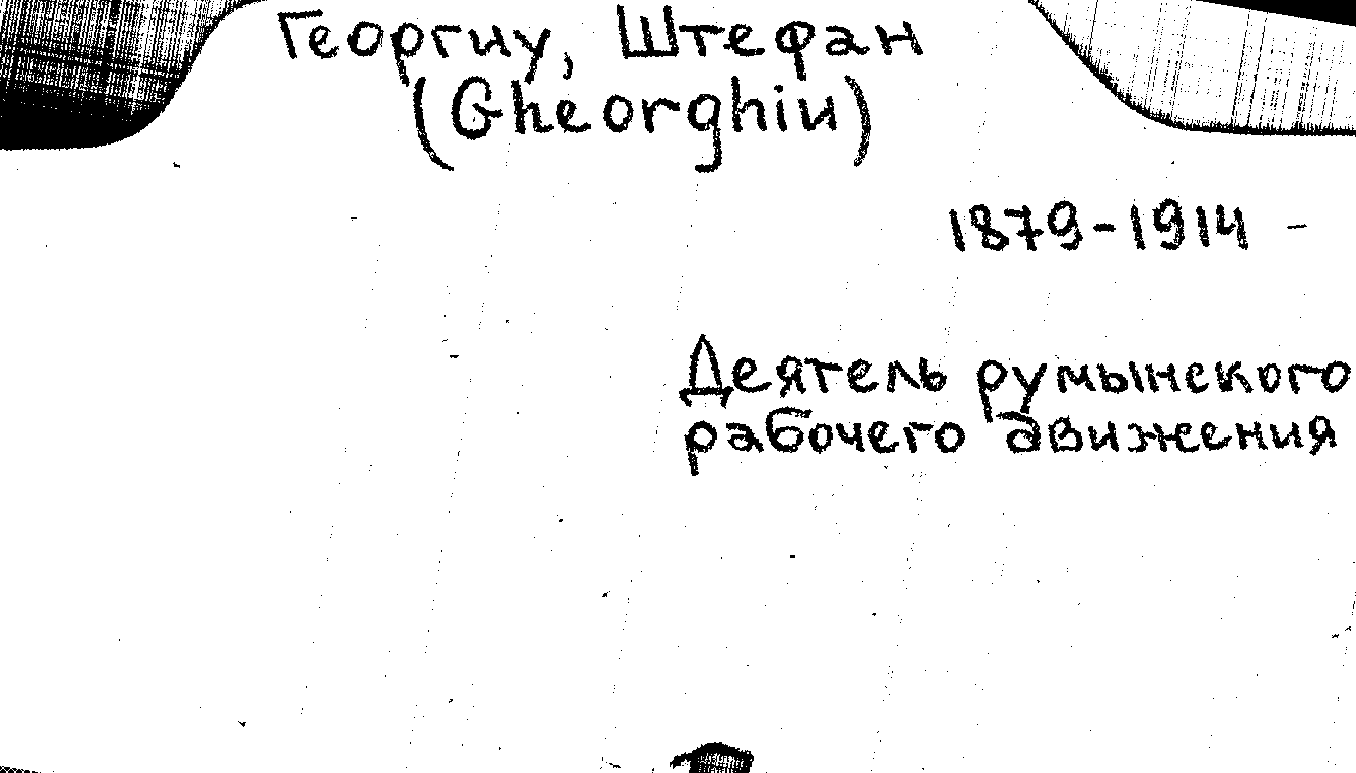 Георгиу, Штефан
(Gheorghiu)
1879-1914
Деятель румынского
рабочего движения